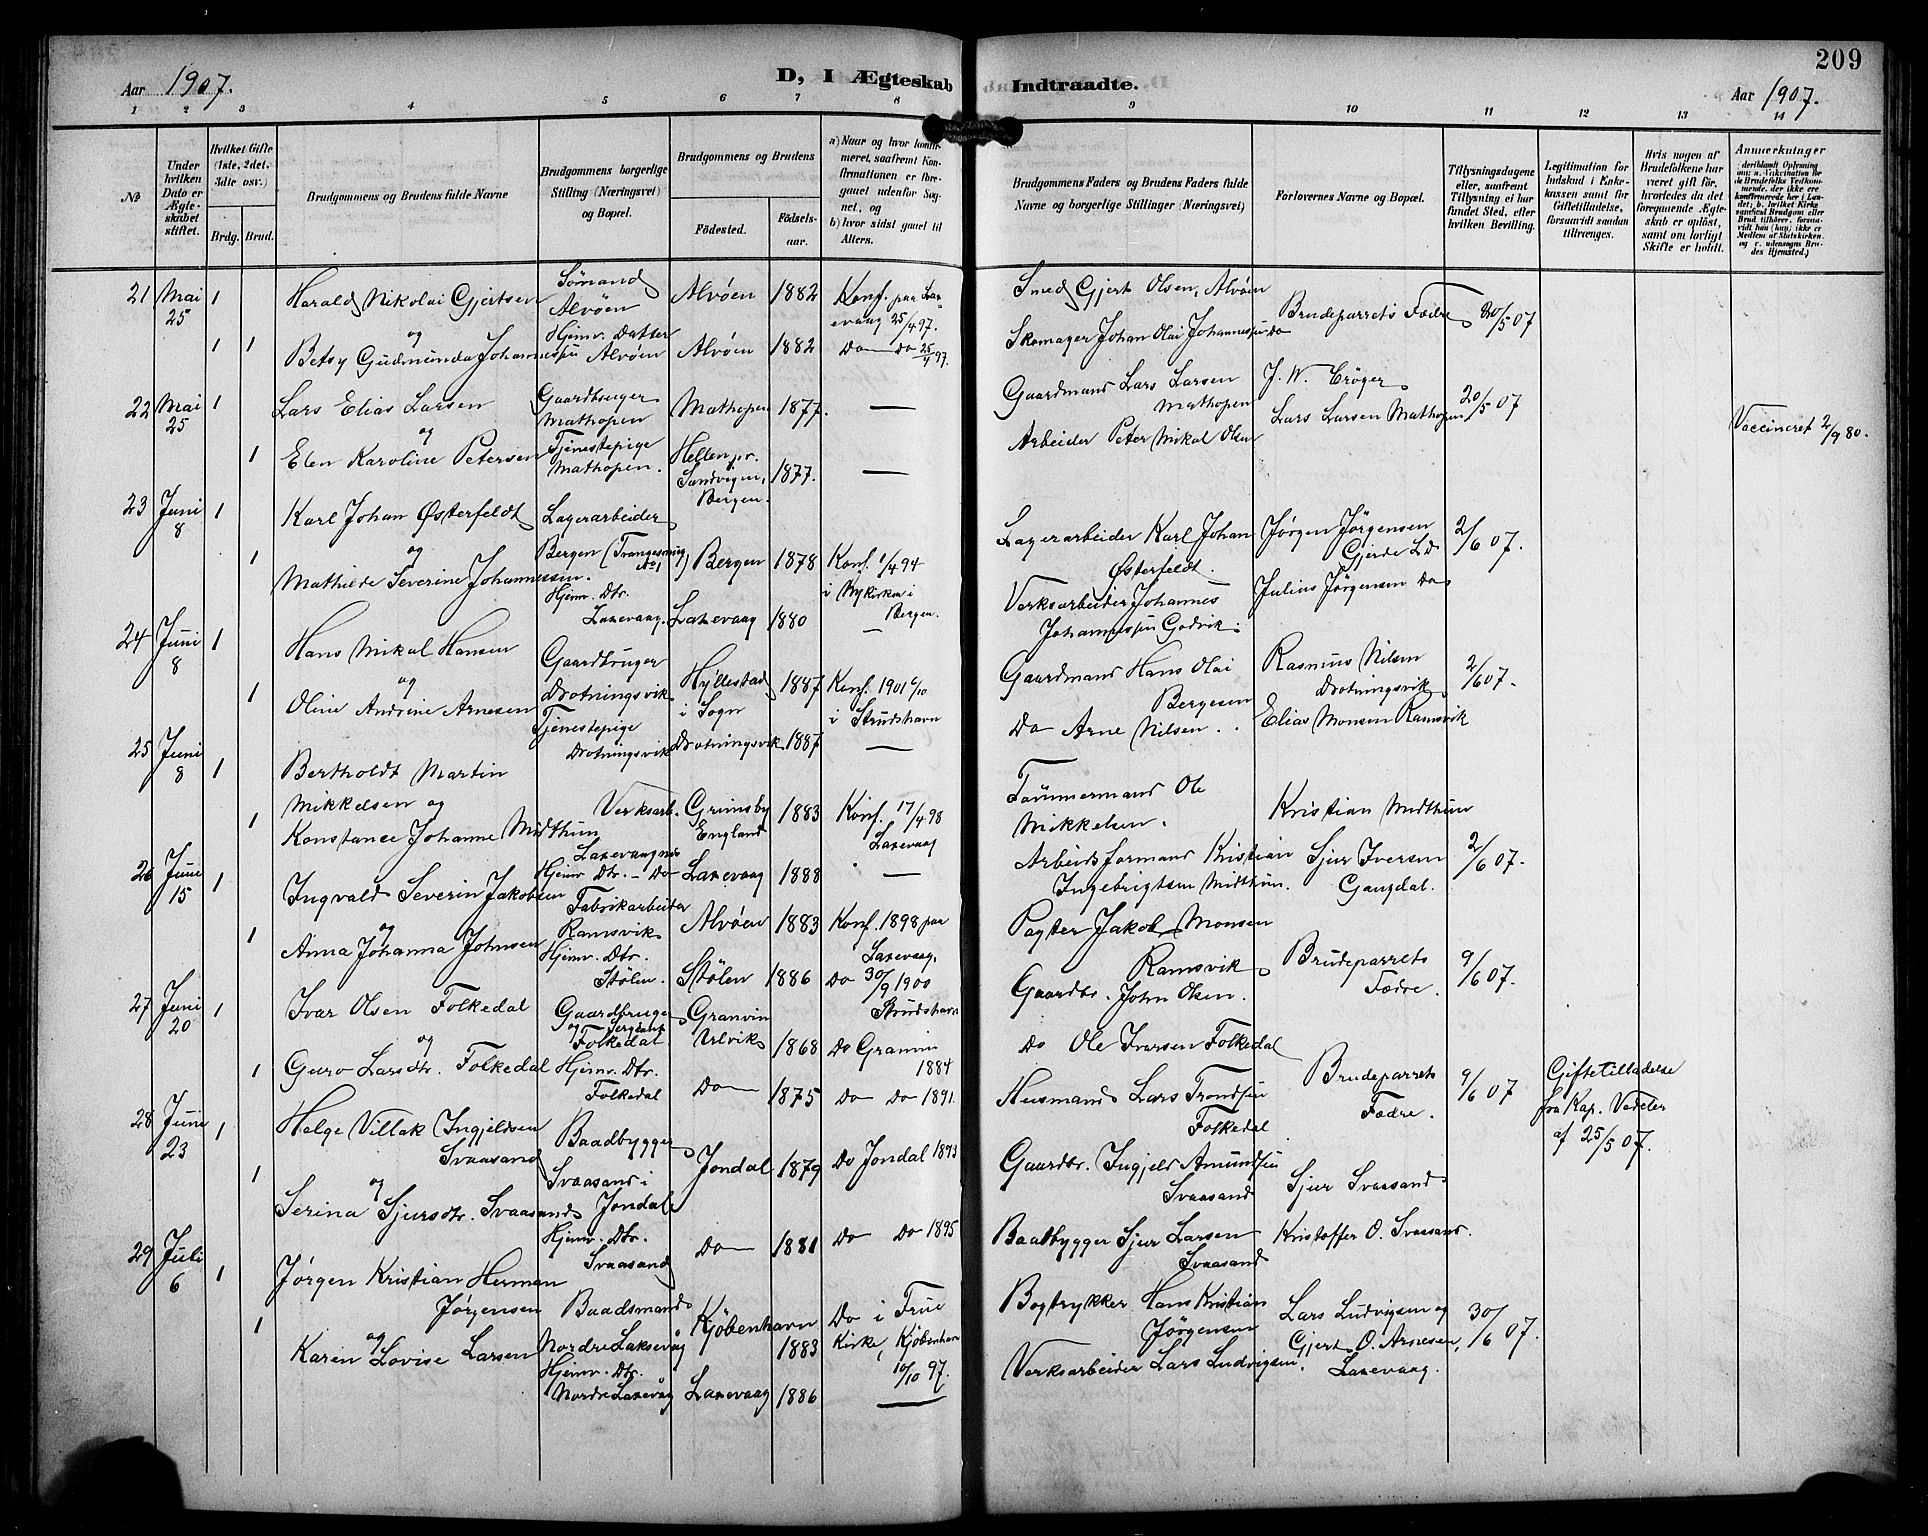 209
Aar 1907.
D, I Ægteskab Indtraadte.
Aar 1907.
1 2 3 4 5 6 7 8 9 10 11 12 13 14
No
Under hvilken Dato er Ægteskabet stiftet.
Hvilket Gifte (1ste, 2det, 3die osv.)
Brdg. Brud.
Brudgommens og Brudens fulde Navne
Brudgommens borgerlige Stilling (Næringsvei) og Bopæl.
Brudgommens og Brudens
Fødested.
Fødselsaar.
a) Naar og hvor konfirmeret, saafremt Konfirmationen er foregaaet udenfor Sognet, og
b) hvor sidst gaaet til Alters.
Brudgommens Faders og Brudens Faders fulde Navne og borgerlige Stillinger (Næringsvei)
Forlovernes Navne og Bopæl.
Tillysningsdagene eller, saafremt Tillysning ei har fundet Sted, efter hvilken Bevilling.
Legitimation for Indskud i Enkekassen samt for Giftetilladelse, forsaavidt saadan tiltrænges.
Hvis nogen af Brudefolkene har været gift før, hvorledes da det foregaaende Ægteskab er opløst, samt om lovligt Skifte er holdt.
Anmærkninger
21 Mai 25 1
Harald Nikolai Gjertsen
Sømand Alvøen
Alvøen 1882
Konf. paa Laxevaag 25/4 97.
Smed Gjert Olsen, Alvøen
Brudeparrets Fædre
20/5 07
og
1 1
Betsy Gudmunda Johannessen
Hjemv. Datter Alvøen
Alvøen 1882
Do Do 25/4 97.
Skomager Johan Olai Johannessen Do
22 Mai 25 1
Lars Elias Larsen
Gaardbruger Mathopen
Mathopen 1877.
—
Gaardmand Lars Larsen Mathopen
J. W. Crøger
Lars Larsen Mathopen
20/5 07
Vaccineret 2/9 80.
og
1
Elen Karoline Petersen
Tjenestepige Mathopen.
Hellen pr. Sandvigen, Bergen. 1877.
—
Arbeider Peter Mikal Olsen
23 Juni 8 1
Karl Johan Østerfeldt
Lagerarbeider Bergen
Bergen 1878
Konf. 1/4 94 i Nykirken i Bergen.
Lagerarbeider Karl Johan Østerfeldt.
Jørgen Jørgensen Gjerde
2/6 07.
og
1
Mathilde Severine Johannessen.
Hjemv. Dtr. Laxevaag.
Laxevaag 1880
—
Verksarbeider Johannes Johannessen Godvik.
Julius Jørgensen Do
24 Juni 8 1
Hans Mikal Hansen
Gaardbruger Drotningsvik
Hyllestad i Sogn 1887
Konf. 1901 6/10 i Strudshavn
Gaardmand Hans Olai Bergesen
Rasmus Nilsen Drotningsvik
2/6 07.
og
1
Oline Andrine Arnesen
Tjenestepige Drotningsvik
Drotningsvik 1887
—
Do Arne Nilsen.
Elias Monsen Ramsvik
25 Juni 8 1
Bertholdt Martin Mikkelsen og
Verksarb. Laxevaagnes
Grimsby England 1883
Konf. 17/4 98 Laxevaag
Tømmermand Ole Mikkelsen.
Kristian Midthun
2/6 07.
1
Konstance Johanne Midthun
Hjemv. Dtr. - Do
Laxevaag 1888
—
Arbeidsformand Kristian Ingebrigtsen Midthun.
Sjur Iversen Gangdal.
26 Juni 15 1
Ingvald Severin Jakobsen
Fabrikarbeider Ramsvik
Alvøen 1883
Konf. 1898 paa Laxevaag.
Pagter Jakob Monsen Ramsvik
Brudeparrets Fædre.
9/6 07.
og
1
Anna Johanna Johnsen
Hjemv. Dtr. Stølen.
Stølen 1886
Do 30/9 1900 Strudshavn
Gaardbr. John Olsen.
27 Juni 20 1
Ivar Olsen Folkedal
Gaardbruger og Sergeant Folkedal
Granvin Ulvik 1868
Do Granvin 1884
Do Ole Ivarsen Folkedal
Brudeparrets Fædre.
9/6 07
Giftetilladelse fra Kap. Vedeler af 25/5 07.
og
1
Guro Larsdtr. Folkedal
Hjemv. Dtr. Folkedal
Do 1875
Do Do 1891.
Husmand Lars Trondsen Folkedal
28 Juni 23 1
Helge Villak Ingjeldsen Svaasand
Baadbygger Svaasand i Jondal
Jondal 1879
Do Jondal 1893
Gaardbr. Ingjeld Amundsen Svaasand
Sjur Svaasand
og
1
Serina Sjursdtr. Svaasand
Hjemv. Dtr. Svaasand
Do 1881
Do Do 1895
Baadbygger Sjur Larsen Svaasand
Kristoffer O. Svaasand.
29 Juli 6 1
Jørgen Kristian Herman Jørgensen
Baadsmand Nordre Laksevåg
Kjøbenhavn 1883
Do i Frue Kirke, Kjøbenhavn 10/10 97.
Bogtrykker Hans Kristian Jørgensen
Lars Ludvigsen og
30/6 07.
og
1
Karen Lovise Larsen
Hjemv. Dtr. Nordre Laxevåg
Laxevaag 1886
—
Verksarbeider Lars Ludvigsen.
Gjert O. Arnesen, Laxevaag.